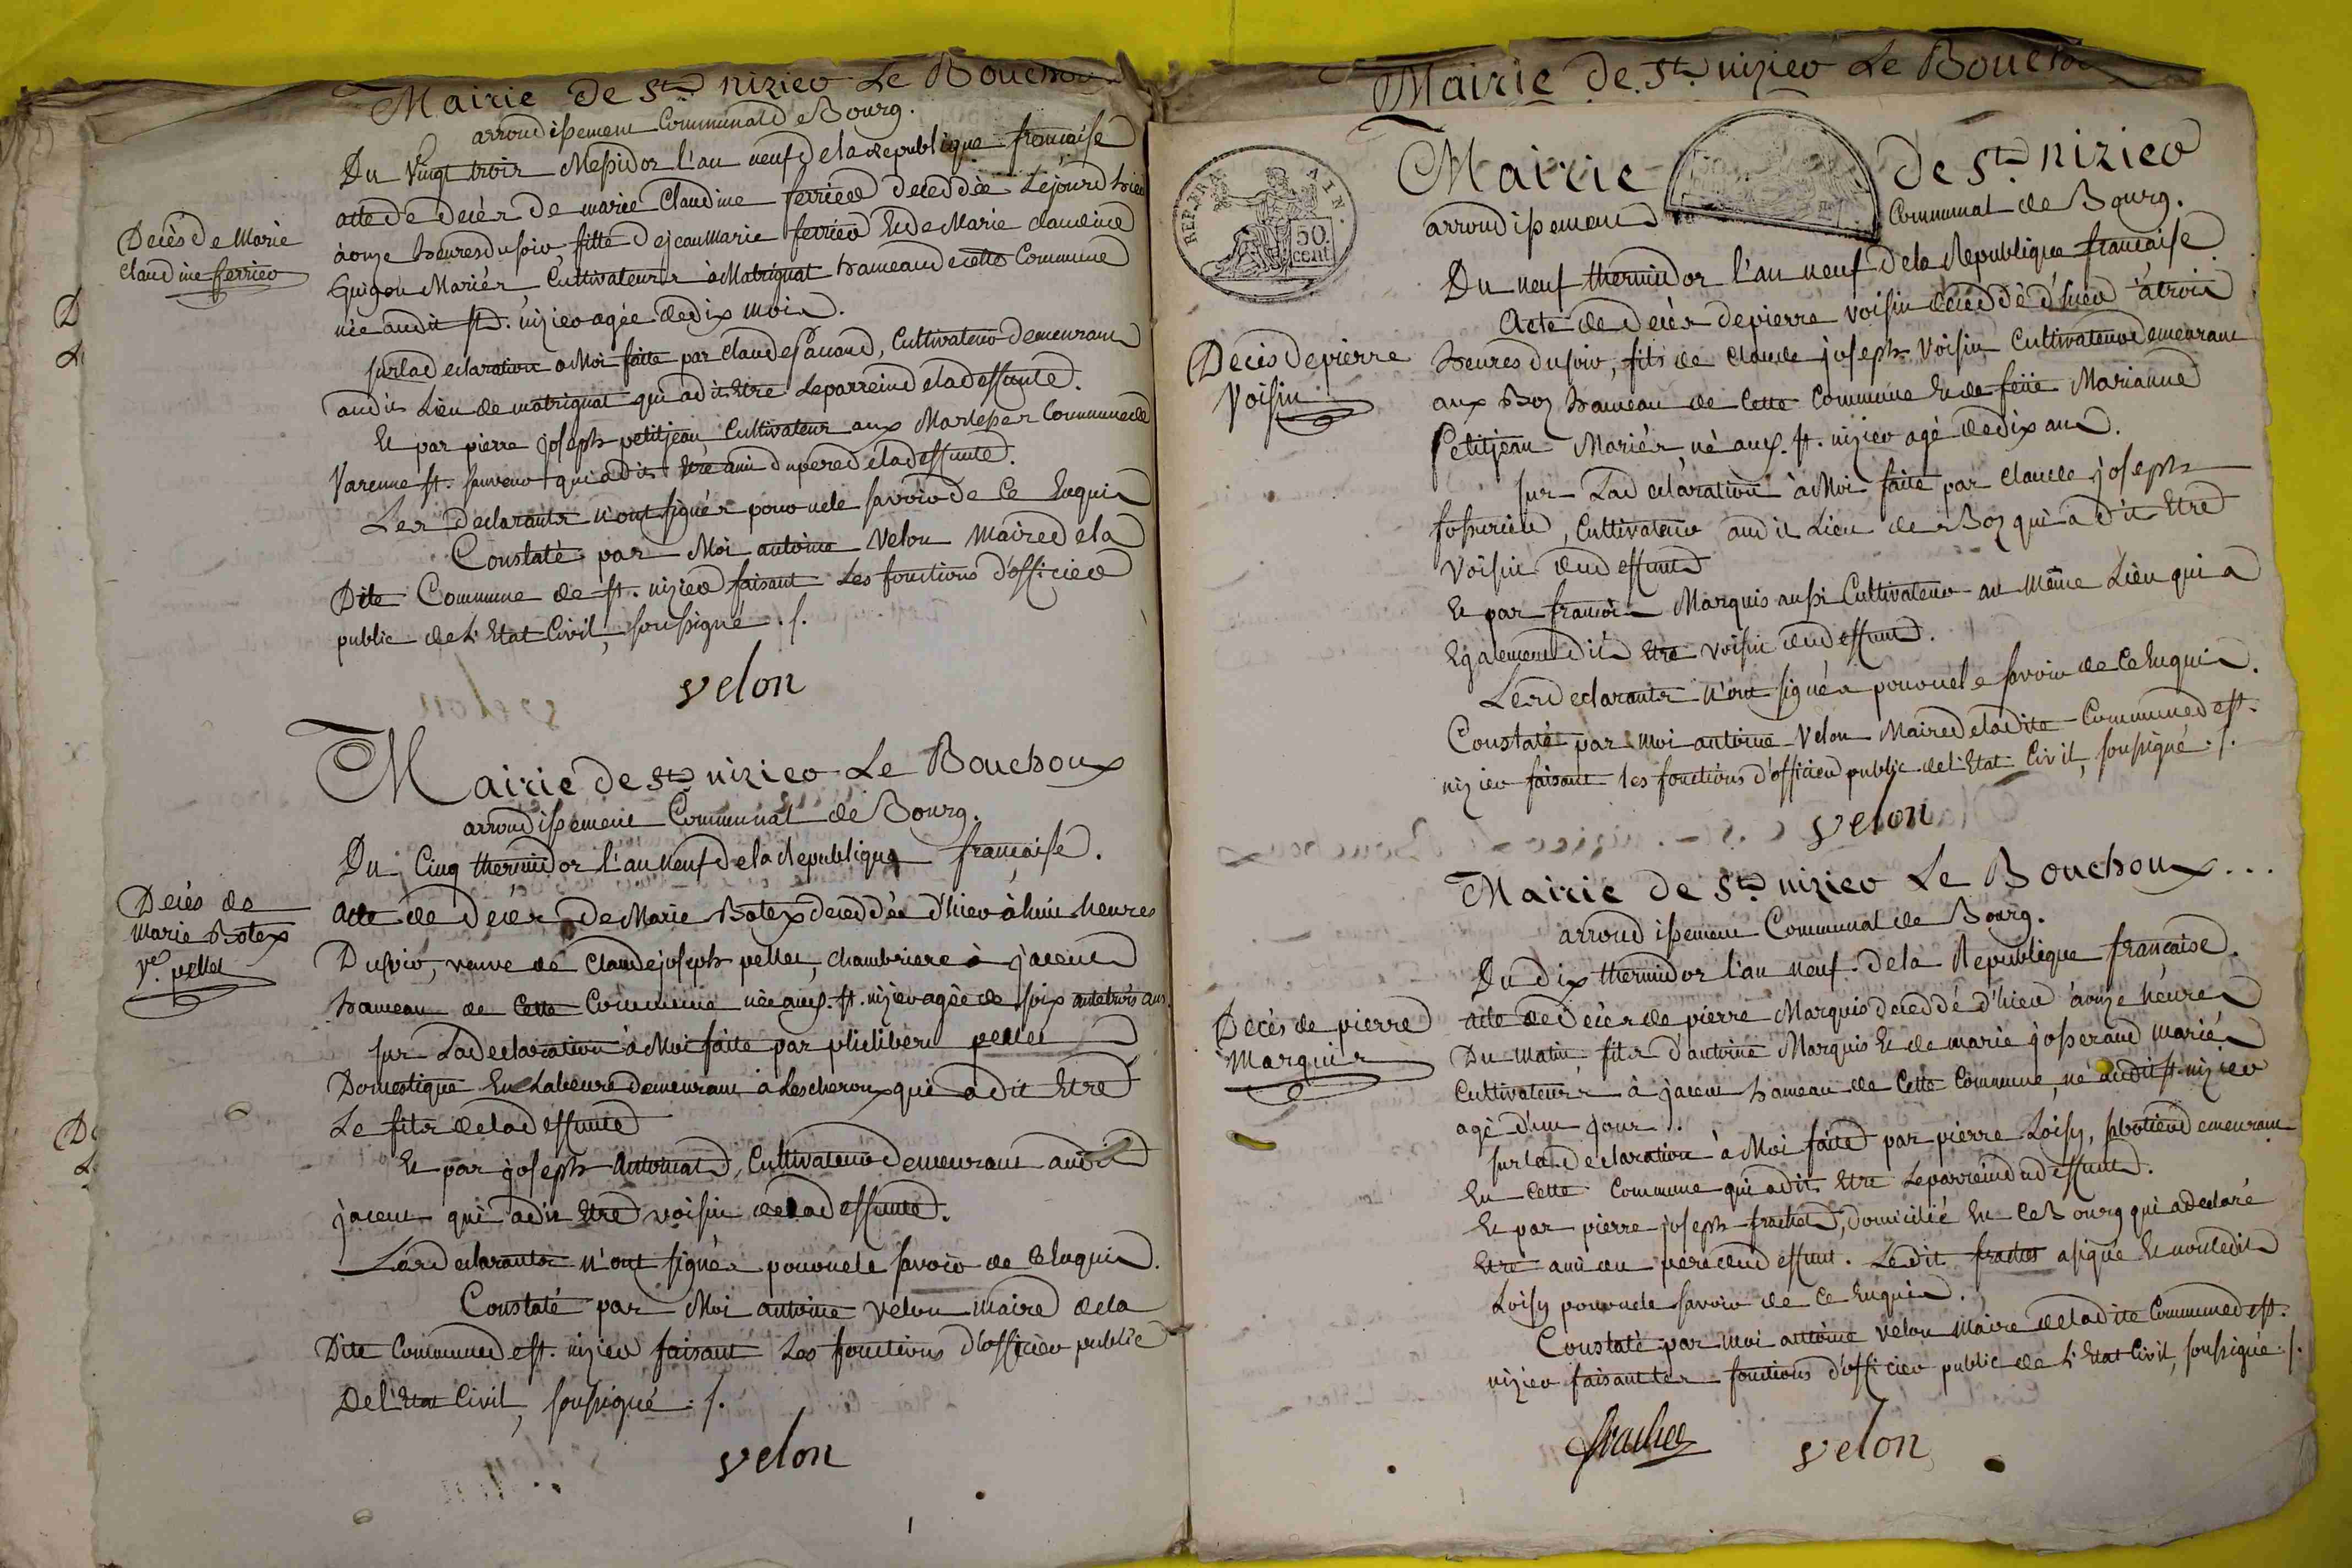 Mairie de St. nizier Le Bouchoux
arrondissement Communal de Bourg.
Du Vingt trois Messidor l'an neuf de la republique francaise
acte de decès de marie Claudine ferrier decedée Le jour d'hier
à onze heures du soir, fille de jean Marie ferrier Et de Marie claudine
Guigon Mariés Cultivateurs à Matrignat hameau de cette Commune
née audit st. nizier agée de dix mois.
sur la declaration à Moi faite par claude Pauand, Cultivateur demeurant
audit Lieu de matrignat qui a dit Etre Le parrein de la deffunte.
Et par pierre joseph petitjean Cultivateur aux Commune de
Varenne st. sauveur qui a dit Etre ami du pere de la deffunte.
Les declarants n'ont signés pour ne le savoir de Ce Enquis
Constaté par Moi antoine Velon Maire de la
Dite Commune de st. nizier faisant Les fonctions d'officier
public de L'Etat Civil, soussigné ./.
velon
Decès de Marie
claudine ferrier
Mairie de St. nizier Le Bouchoux
arrondissement Communal de Bourg.
Du Cinq thermidor l'an neuf de la Republique francaise.
Acte de decès de Marie Botex decedée d'hier à huit heures
Du soir, veuve de Claude joseph pellet, chambriere à jaceut
hameau de Cette Commune née aud. st. nizier agée de soixante trois ans.
sur La declaration à Moi faite par philibert pellet
Domestique En Labeure demeurant à Lescheroux qui a dit Etre
Le fils de la deffunte
Et par joseph antomat, Cultivateur Demeurant audit
jaceut qui a dit Etre voisin de la deffunte.
Les declarants n'ont signés pour ne le savoir de Ce Enquis.
Constaté par Moi antoine velon maire de la
Dite Commune de st. nizier faisant Les fonctions d'officier public
De l'Etat Civil, soussigné ./.
velon
Decès de
Marie Botex
ve. pellet
Mairie de St. nizier Le Bouchoux
REP. FRA 50. cent. ATN.
Mairie de St. nizier
arrondissement Communal de Bourg.
Du neuf thermidor l'an neuf de la Republique francaise
Acte de decès de pierre voisin decedé d'hier à trois
heures du soir, fils de Claude joseph Voisin Cultivateur demeurant
aux Boz hameau de Cette Commune Et de feüe Marianne
Petitjean Mariés né aud. st. nizier agé de dix ans.
sur La declaration à Moi faite par claude joseph
, Cultivateur audit Lieu des Boz qui a dit Etre
Voisin du deffunt
Et par francois Marquis aussi Cultivateur au même Lieu qui a
Egalement dit Etre voisin du deffunt.
Les declarants n'ont signés pour ne le savoir de Ce Enquis.
Constaté par moi antoine Velon Maire de la dite Commune de st.
nizier faisant les fonctions d'officier public de l'Etat Civil, soussigné ./.
velon
Decès de pierre
Voisin
Mairie de St. nizier Le Bouchoux...
arrondissement Communal de Bourg.
Du dix thermidor l'an neuf de la Republique francaise.
acte de decès de pierre Marquis decedé d'hier à onze heures
Du matin fils d'antoine Marquis Et de marie josserand mariés
Cultivateurs à jaceut hameau de Cette Commune, né audit st. nizier
agé d'un jour.
sur la Declaration à Moi faite par pierre Loisy, sabotier demeurant
En Cette Commune qui a dit Etre Le parrein du deffunt.
Et par pierre joseph frachet, domicilié En Ce Bourg qui a declaré
Etre ami du pere du deffunt. Le dit frachet a signé Et non ledit
Loisy pour ne le savoir de Ce Enquis.
Constaté par moi antoine velon Maire de la dite Commune de st.
nizier faisant les fonctions d'officier public de L'Etat Civil, soussigné ./.
frachet velon
Decès de pierre
Marquis